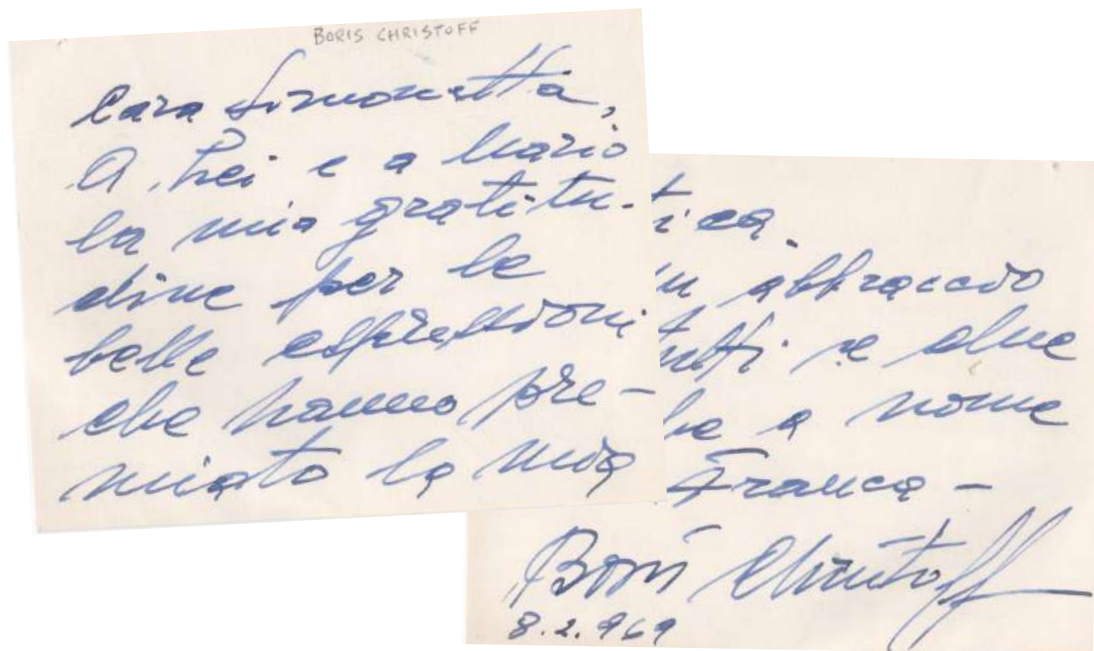 BORIS CHRISTOFF
Cara Simonetta,
A Lei e a Mario
la mia gratitu-
dine per le
belle espressioni
che hanno pre-
miato la mia
tica.
un abbraccio
tutti e due
he a nome
Franca -
Boris Christoff
8.2.969